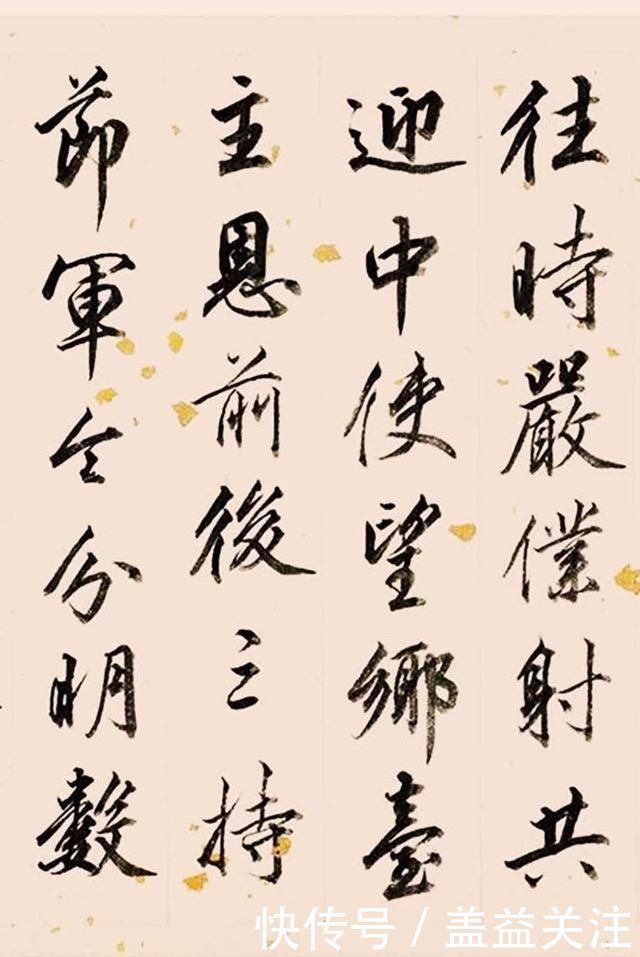 往時嚴僕射共
迎中使望鄉臺
主恩前後三持
節軍令分明數
快传号/盖益关注